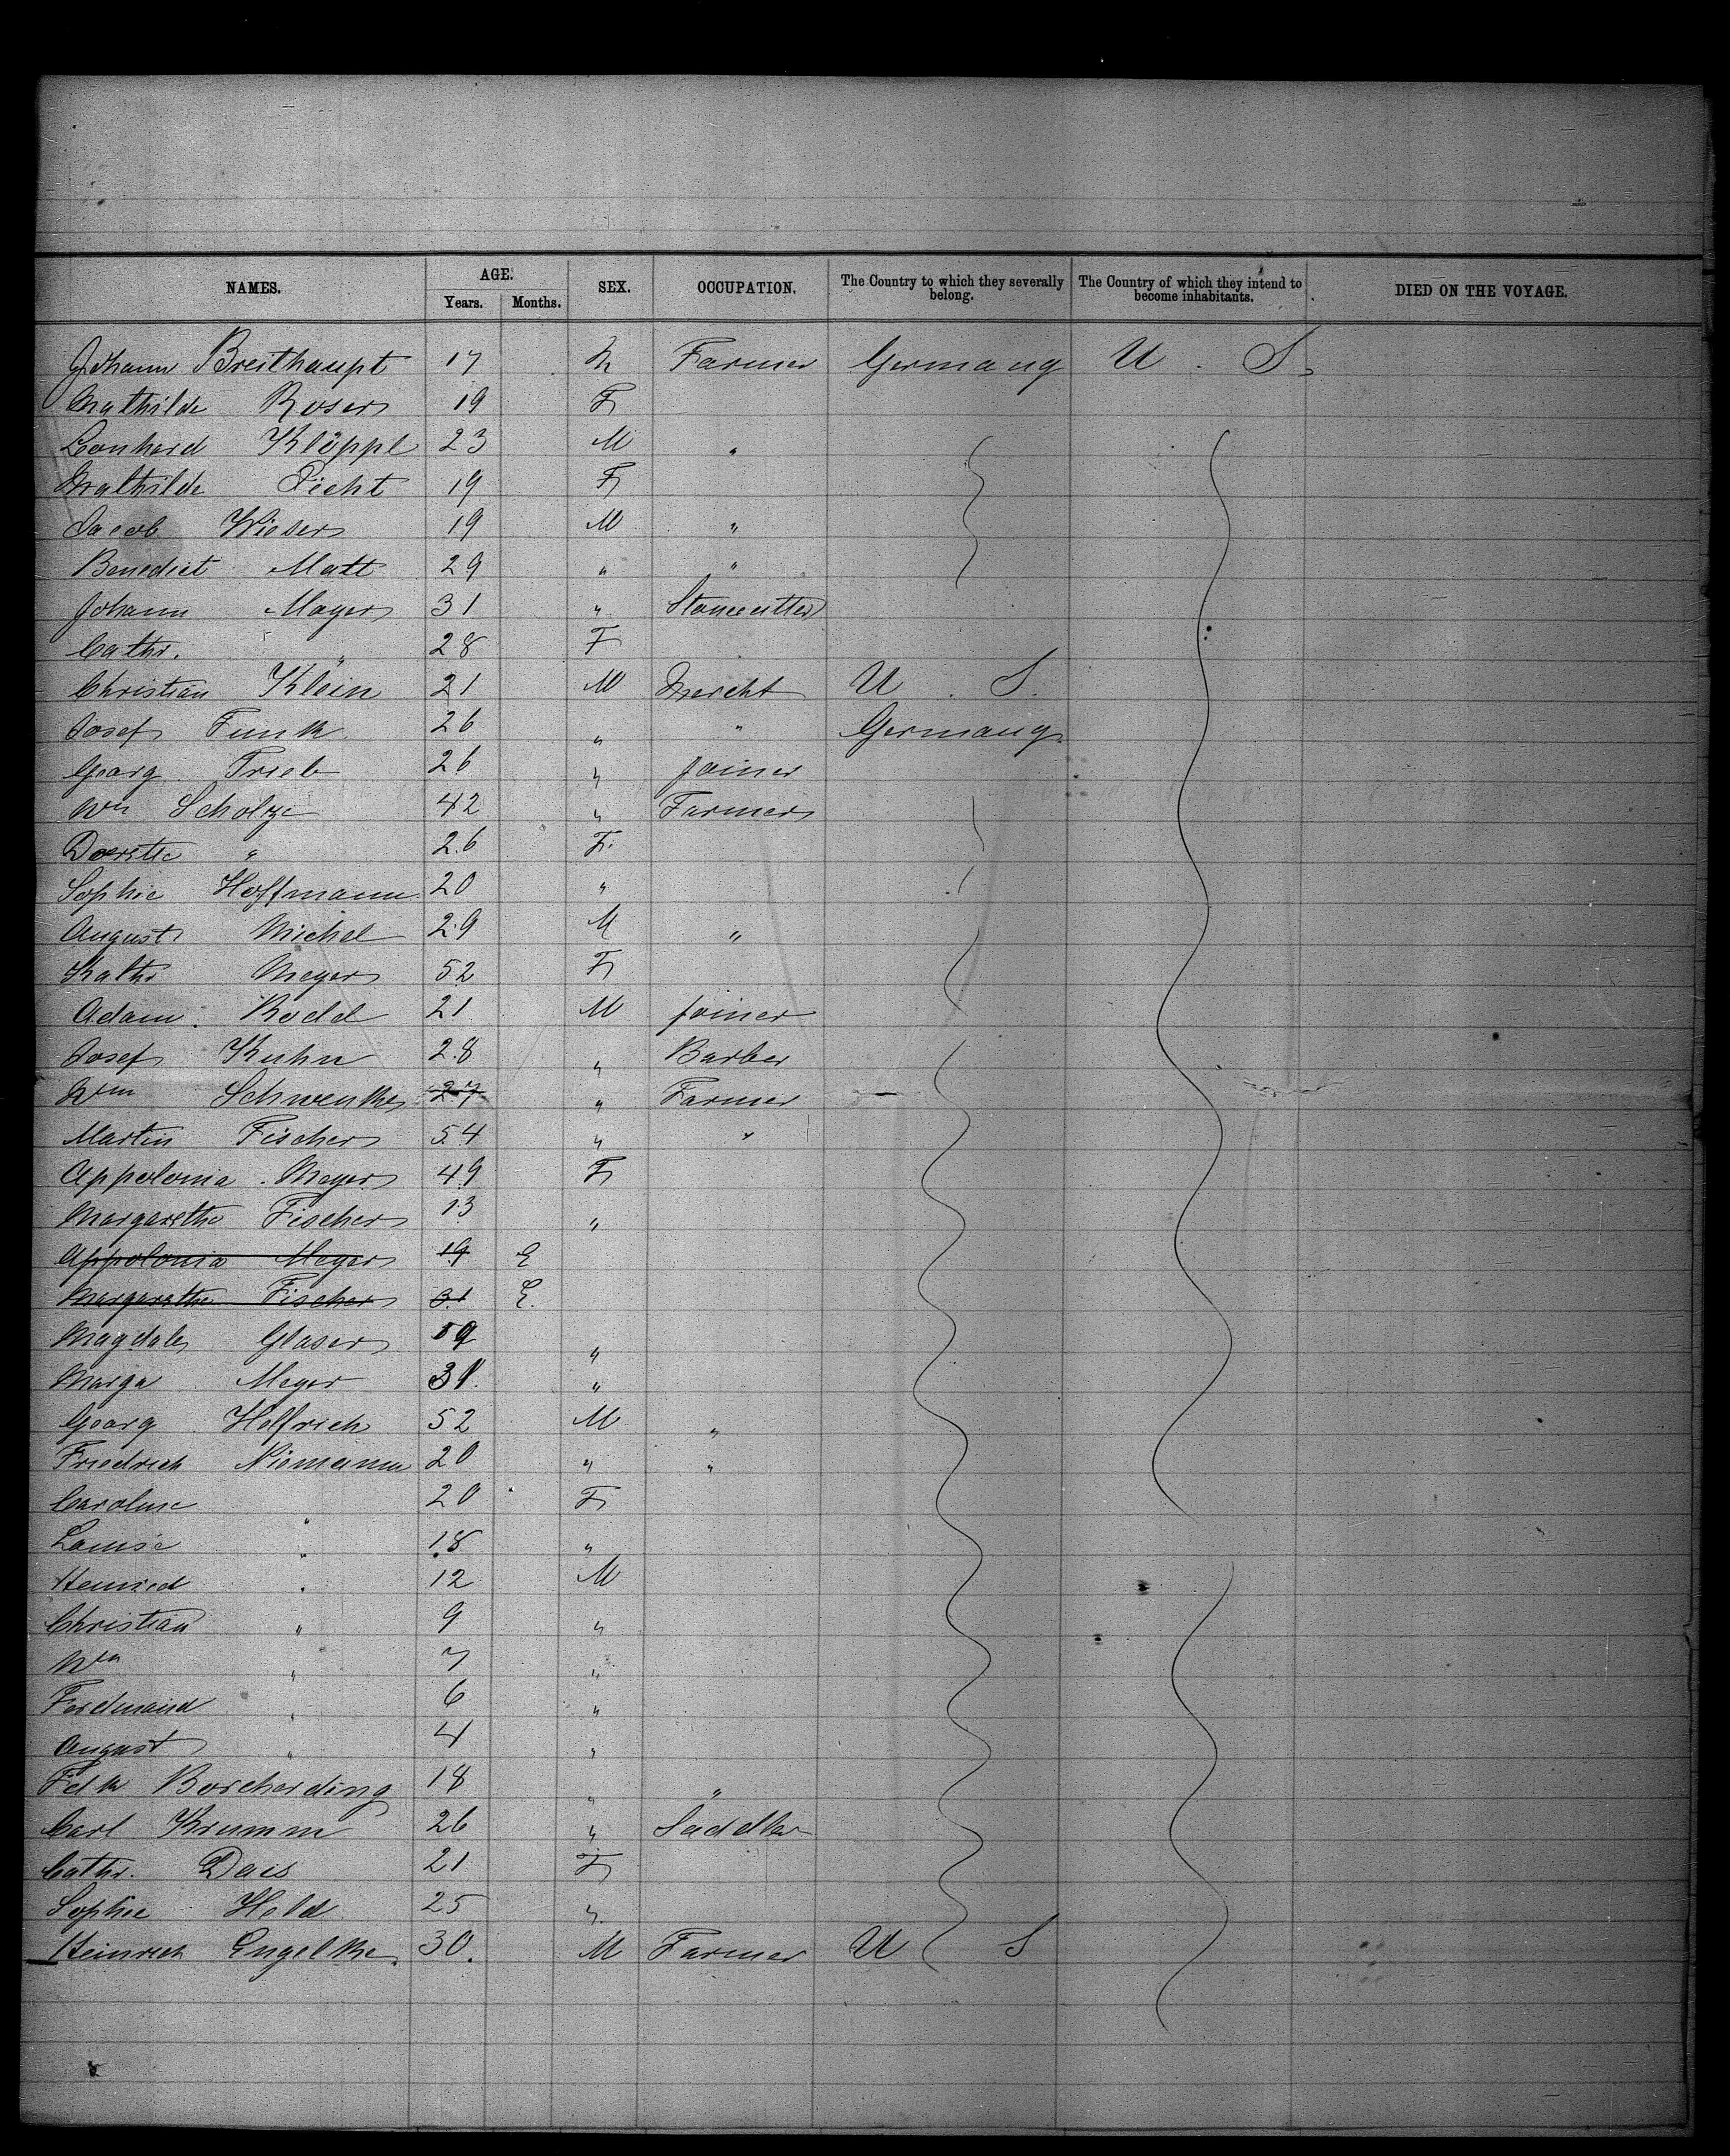 NAMES. AGE. SEX. OCCUPATION. The Country to which they severally belong. The Country of which they intend to become inhabitants. DIED ON THE VOYAGE.
Years. Months.
Johann Breithaupt 17 M Farmer Germany U. S.
Mathilde Roser 19 F
Leonhard Klöppl 23 M "
Mathilde Picht 19 F
Jacob Wieser 19 M "
Benedict Matt 29 " "
Johann Mayer 31 " Stonecutter
Cathr. " 28 F
Christian Klein 21 M Mercht U. S.
Josef Funk 26 " " Germany
Georg Trieb 26 " joiner
Wm Scholze 42 " Farmer
" 26 F.
Sophie Hoffmann 20 "
August Michel 29 M "
Kathr Meyer 52 F
Adam Rodd 21 M joiner
Josef Kuhn 28 " Barber
Wm Schwenke 27 " Farmer
Martin Fischer 54 " "
Appolonia Meyer 49 F
Margaretha Fischer 13 "
Appolonia Meyer 19 E
Margaretha Fischer 31 E.
Magdale Glaser 59 "
Marga Meyer 31. "
Georg Helfrich 52 M "
Friedrich Niemann 20 " "
Caroline " 20 F
Louise " 18 "
" 12 M
Christian " 9 "
Wm " 7 "
Ferdinand " 6 "
August " 4 "
Fdk Borcherding 18 " "
Carl Krumm 26 " Saddler
Cathr. Dais 21 F
Sophie Held 25 "
Heinrich Engelke. 30. M Farmer U S